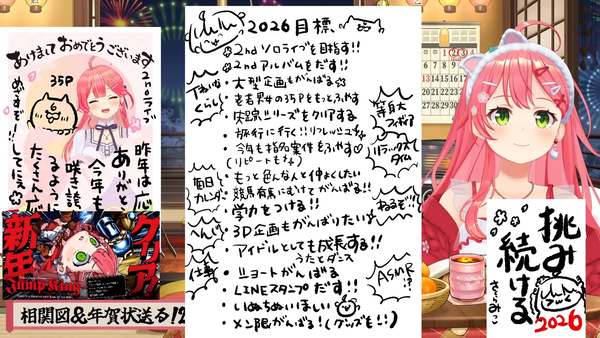 あけまして おめでとうございます
35P
2ndライブ
めざすぞー!!
してにぇ
昨年は応
ありがと
今年も
咲き誇
るように
たくさん応
クリア!
新年
Jump King
相関図&年賀状送る!2
2026目標、
2ndソロライブを目指す!!
2ndアルバムをだす!!
・大型企画もがんばる
・老若男女の35Pをもっとふやす
・実況シリーズをクリアする
・旅行に行く!!リフレッシュ
・今年も指名案件をふやす♡
(リピートも)
・もっと色んな人と仲よくしたい
・競馬有馬にむけてがんばる!!
・学力をつける!!
・3D企画もがんばりたい
・アイドルとしても成長する!!
うたとダンス
・ショートがんばる
・LINEスタンプだす!!
・いめちぇんほしい
・メン限がんばる!(グッズも!!)
ていねいな
くらし
毎日
カレンダー
へんじ
仕事
等身大
フィギュア
リラックス
タイム
ねるぞ!!
ASMR
!?
挑み
続ける
さくらみこ
2026